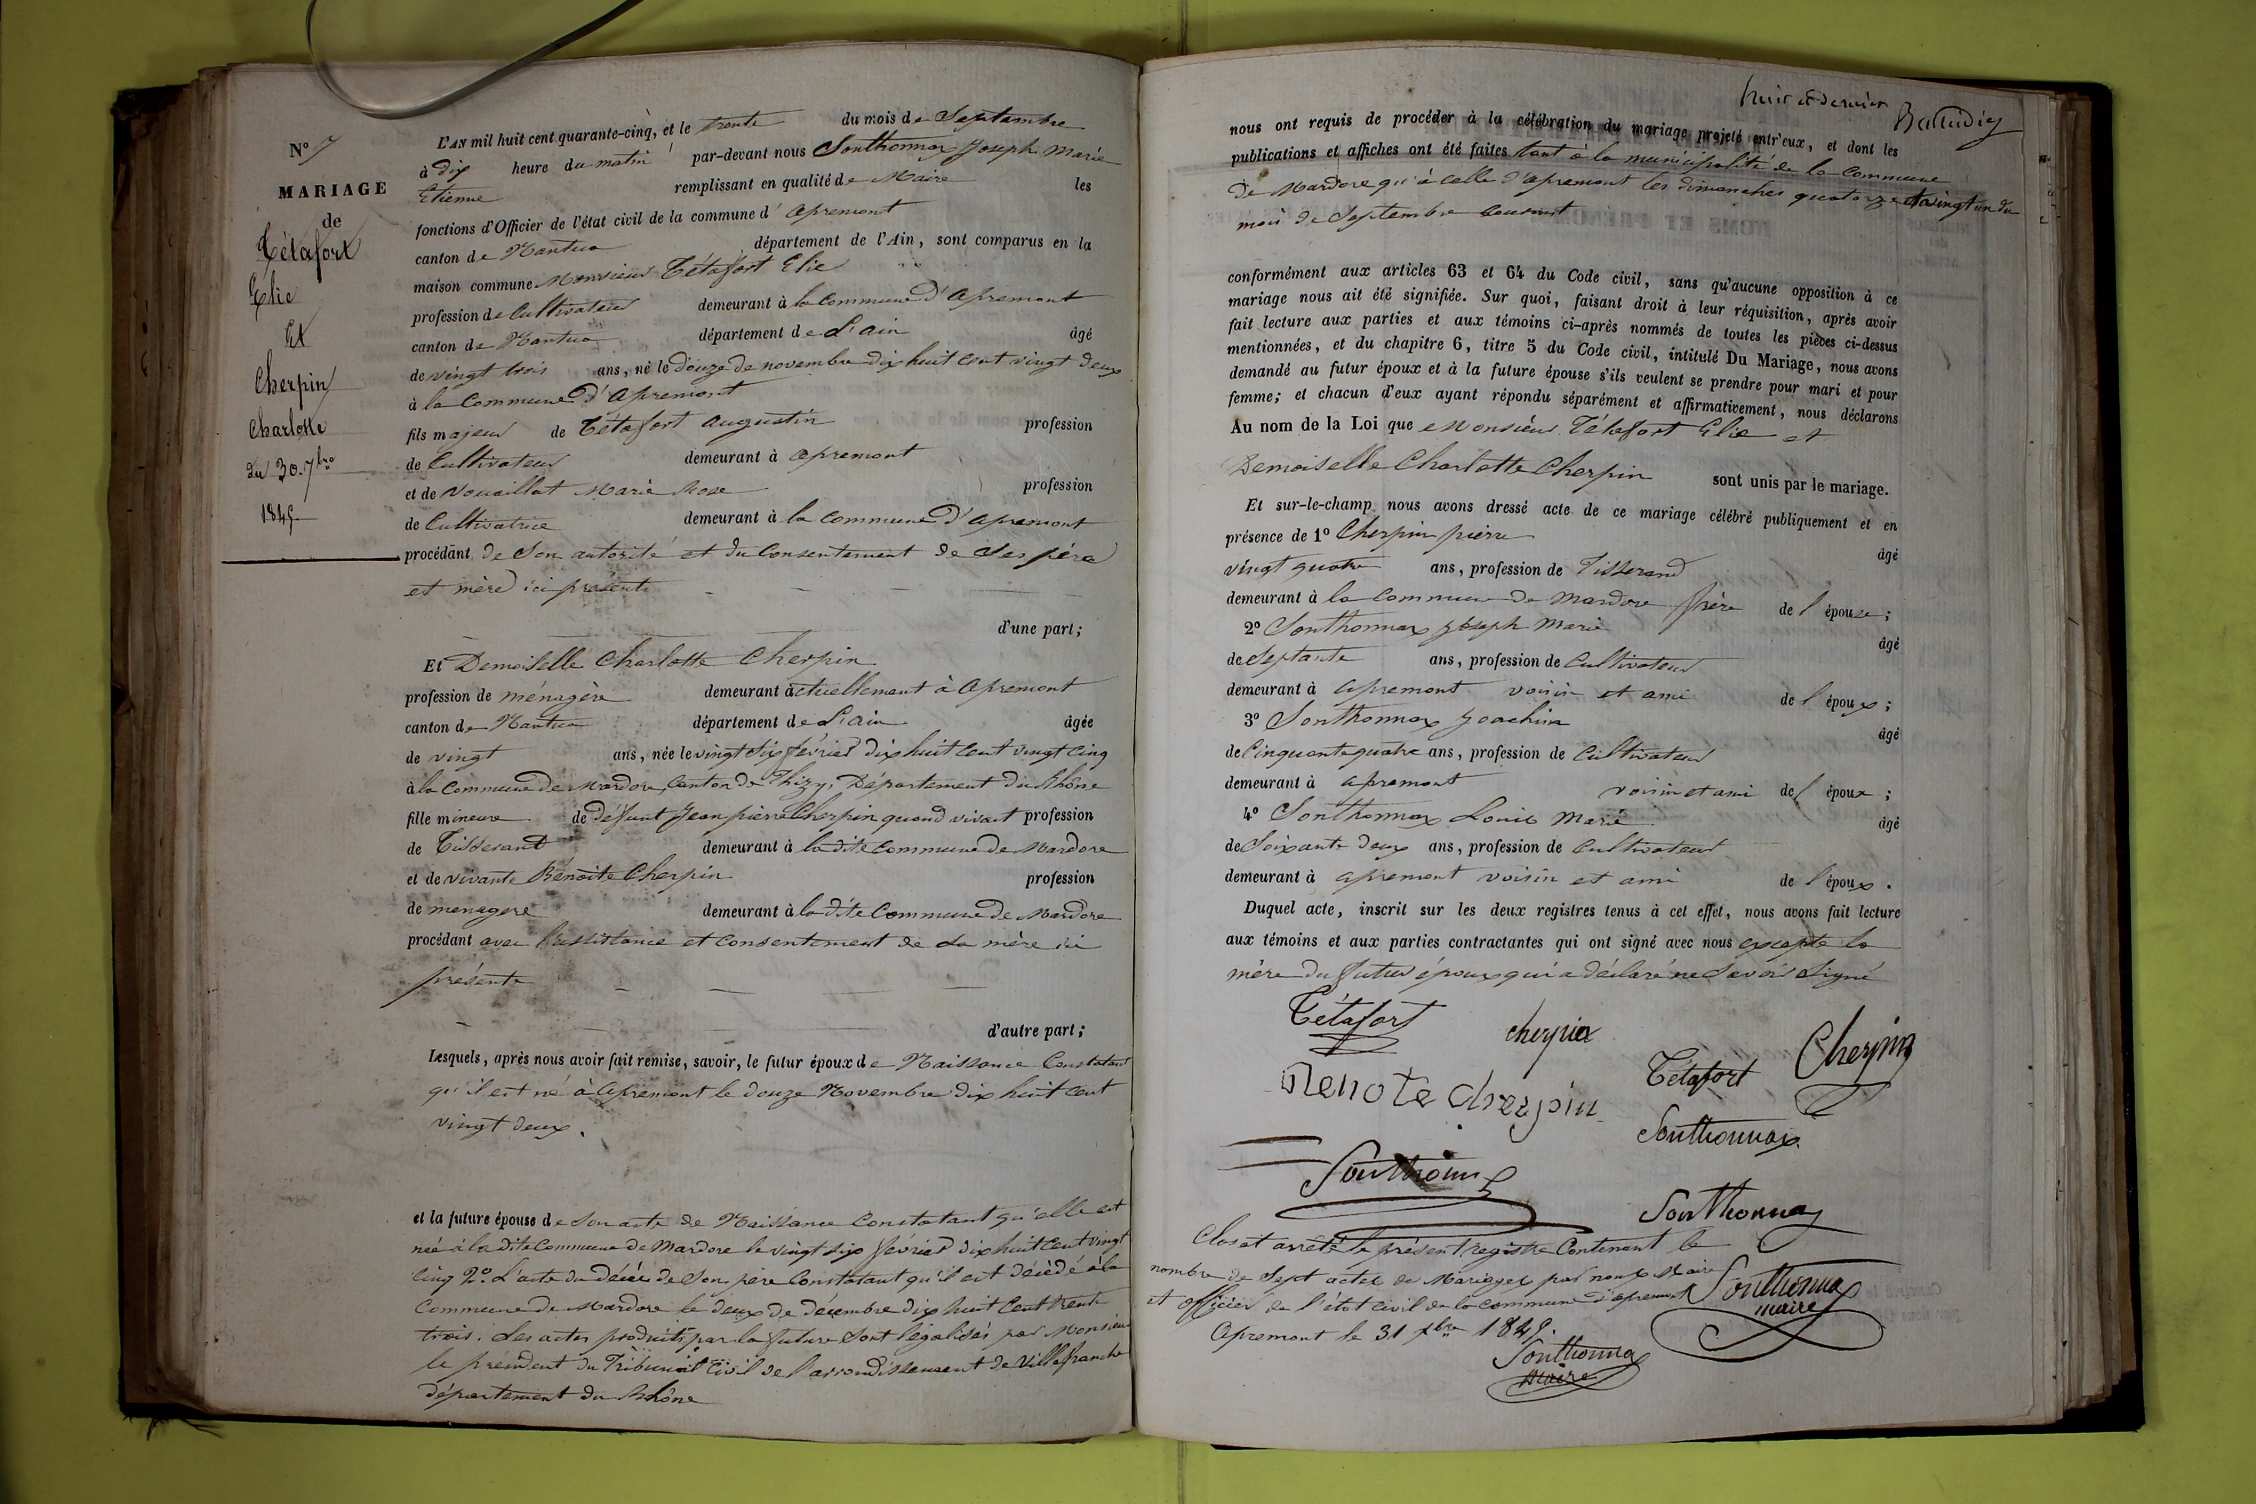 N° 7
MARIAGE
de
Tétafort
Elie
Et
Cherpin
Charlotte
du 30 7bre
1845
L'AN mil huit cent quarante-cinq, et le trente du mois de Septembre
à dix heure du matin par-devant nous Sonthonnax Joseph Marie
Etienne remplissant en qualité de Maire les
fonctions d'Officier de l'état civil de la commune d'apremont
canton de Nantua département de l'Ain, sont comparus en la
maison commune Monsieur Tétafort Elie
profession de Cultivateur demeurant à la Commune d'apremont
canton de Nantua département de L'ain âgé
de vingt trois ans, né le douze de novembre dix huit cent vingt deux
à la Commune d'apremont
fils majeur de Tétafort augustin profession
de Cultivateur demeurant à apremont
et de Vouaillat Marie Rose profession
de Cultivatrice demeurant à la Commune d'apremont
procédant de Son autorité et du Consentement de Ses père
et mère ici présents
d'une part;
Et Demoiselle Charlotte Cherpin
profession de ménagère demeurant actuellement à Apremont
canton de Nantua département de L'ain âgée
de vingt ans, née le vingt Six février dix huit Cent vingt Cinq
à la Commune de Mardore, Canton de Thizy, Département du Rhône
fille mineure de défunt Jean pierre Cherpin quand vivait profession
de Tisserant demeurant à la dite Commune de Mardore
et de vivante Benoite Cherpin profession
de menagere demeurant à la dite Commune de Mardore
procédant avec l'assistance et Consentement de Sa mère ici
présente
d'autre part;
Lesquels, après nous avoir fait remise, savoir, le futur époux de Naissance Constatant
qu'il est né à Apremont le douze Novembre dix huit cent
vingt deux.
et la future épouse de Son acte de Naissance Constatant qu'elle est
née à la dite Commune de Mardore le vingt Six février dix huit Cent vingt
Cinq 2° L'acte du décès de Son père Constatant qu'il est décédé à la
Commune de Mardore le deux de décembre dix huit Cent trente
trois. Les actes produits par la future Sont légalisés par Monsieur
le président du Tribunal Civil de l'arrondissement de Villefranche
département du Rhône
huit et dernier
nous ont requis de procéder à la célébration du mariage projeté entr'eux, et dont les
publications et affiches ont été faites tant à la municipalité de la Commune
de Mardore qu'à celle d'apremont les dimanches quatorze et vingt un du
mois de Septembre Courant
conformément aux articles 63 et 64 du Code civil, sans qu'aucune opposition à ce
mariage nous ait été signifiée. Sur quoi, faisant droit à leur réquisition, après avoir
fait lecture aux parties et aux témoins ci-après nommés de toutes les pièces ci-dessus
mentionnées, et du chapitre 6, titre 5 du Code civil, intitulé Du Mariage, nous avons
demandé au futur époux et à la future épouse s'ils veulent se prendre pour mari et pour
femme; et chacun d'eux ayant répondu séparément et affirmativement, nous déclarons
Au nom de la Loi que Monsieur Tétafort Elie et
Demoiselle Charlotte Cherpin sont unis par le mariage.
Et sur-le-champ nous avons dressé acte de ce mariage célébré publiquement et en
présence de 1° Cherpin pierre âgé
vingt quatre ans, profession de Tisserand
demeurant à la Commune de Mardore frère de l'épouse;
2° Sonthonnax Joseph Marie âgé
de Septante ans, profession de Cultivateur
demeurant à apremont voisin et ami de l'époux;
3° Sonthonnax Joachim âgé
de Cinquante quatre ans, profession de Cultivateur
demeurant à apremont voisin et ami de l'époux;
4° Sonthonnax Louis Marie âgé
de Soixante deux ans, profession de Cultivateur
demeurant à apremont voisin et ami de l'époux.
Duquel acte, inscrit sur les deux registres tenus à cet effet, nous avons fait lecture
aux témoins et aux parties contractantes qui ont signé avec nous excepté la
mère du futur époux qui a déclaré ne Savoir Signé
Tétafort cherpin Cherpin
Benote cherpin Tétafort
Sonthonnax
Sonthonnax
Sonthonnax
Clos et arrêté le présent registre Contenant le
nombre de Sept actes de Mariages par nous Maire
et officier de l'état civil de la commune d'apremont Sonthonnax
maire
Apremont le 31 xbre 1845.
Sonthonnax
Maire